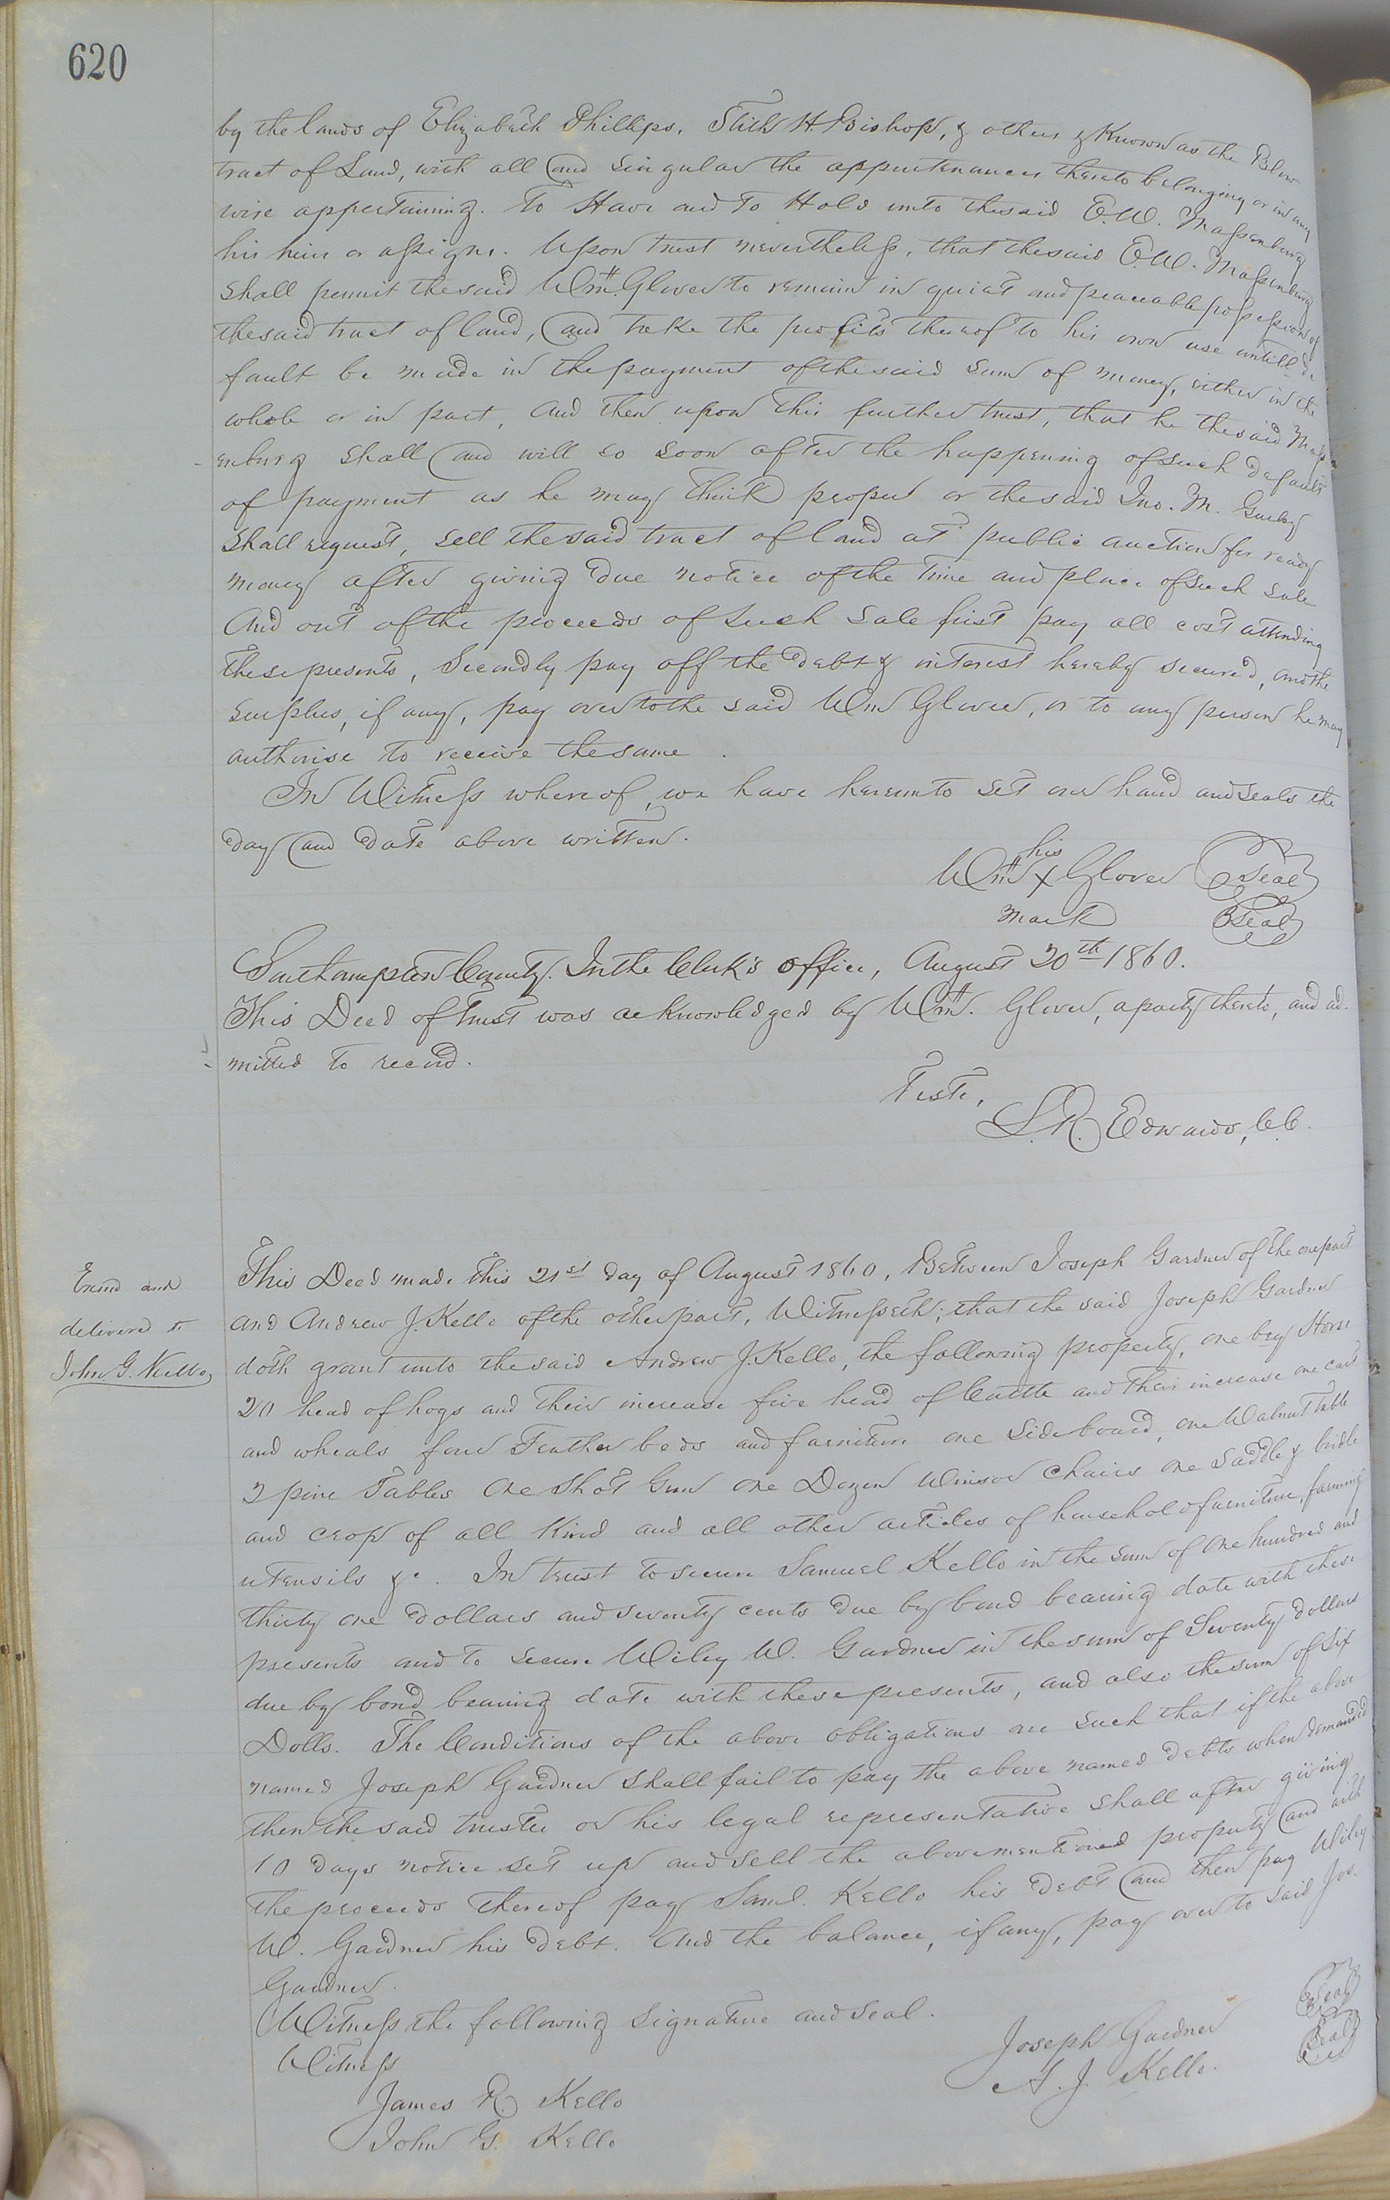 620
by the lands of Elizabeth Phillips, Stith H. Bishop, & others & Known as the Blow
tract of Land, with all and singular the appurtenances thereto belonging or in any
wise appertaining. To Have and To Hold unto the said E.W. Massenburg
his heirs or assigns. Upon trust nevertheless, that the said E.W. Massenburg
shall permit the said Wm. H. Glover to remain in quiet and peaceable possession of
the said tract of land, and take the profits thereof to his own use untill de
fault be made in the payment of the said sum of money, either in the
whole or in part, and then upon this further trust, that he the said Mass
enburg shall and will so soon after the happening of such default
of payment as he may think proper or the said Jno. M. Gurley
shall request, sell the said tract of land at public auction for ready
money after giving due notice of the time and place of such sale
And out of the proceeds of such sale first pay all cost attending
these presents, Secondly pay off the debt & interest hereby secured, and the
surplus, if any, pay over to the said Wm Glover, or to any person he may
authorise to receive the same.
In Witness whereof, we have hereunto set our hand and seals the
day and date above written.
his
Wm H x Glover Seal
mark Seal
Southampton County. In the Clerk's office, August 20th 1860.
This Deed of Trust was acknowledged by Wm H. Glover, a party thereto, and ad-
mitted to record.
Teste,
L. R. Edwards, C.C.
Exam'd and
delivered to
John G. Kello,
This Deed made this 21st day of August 1860, Between Joseph Gardner of the one part
and Andrew J. Kello of the other part, Witnesseth; that the said Joseph Gardner
doth grant unto the said Andrew J. Kello, the following property, one bay Horse
20 head of hogs and their increase five head of Cattle and their increase one cart
and wheals four Feather beds and furniture one Sideboard, one Walnut Table
2 pine Tables One Shot Gun One Dozen Winsor Chairs One Saddle & bridle
and crop of all Kind and all other articles of household furniture, farming
utensils &c. In trust to secure Samuel Kello in the sum of One hundred and
thirty one dollars and seventy cents due by bond bearing date with these
presents and to secure Wiley W. Gardner in the sum of Seventy dollars
due by bond bearing date with these presents, and also the sum of Six
Dolls. The Conditions of the above obligations are such that if the above
named Joseph Gardner shall fail to pay the above named debts when demanded
then the said trustee or his legal representative shall after giving
10 days notice set up and sell the above mentioned property and with
the proceeds thereof pay Saml. Kello his debt and then pay Wiley
W. Gardner his debt. And the balance, if any, pay over to said Jos.
Gardner.
Witness the following signature and seal.
Witness
Joseph Gardner Seal
A. J. Kello. Seal
James R. Kello
John G. Kello